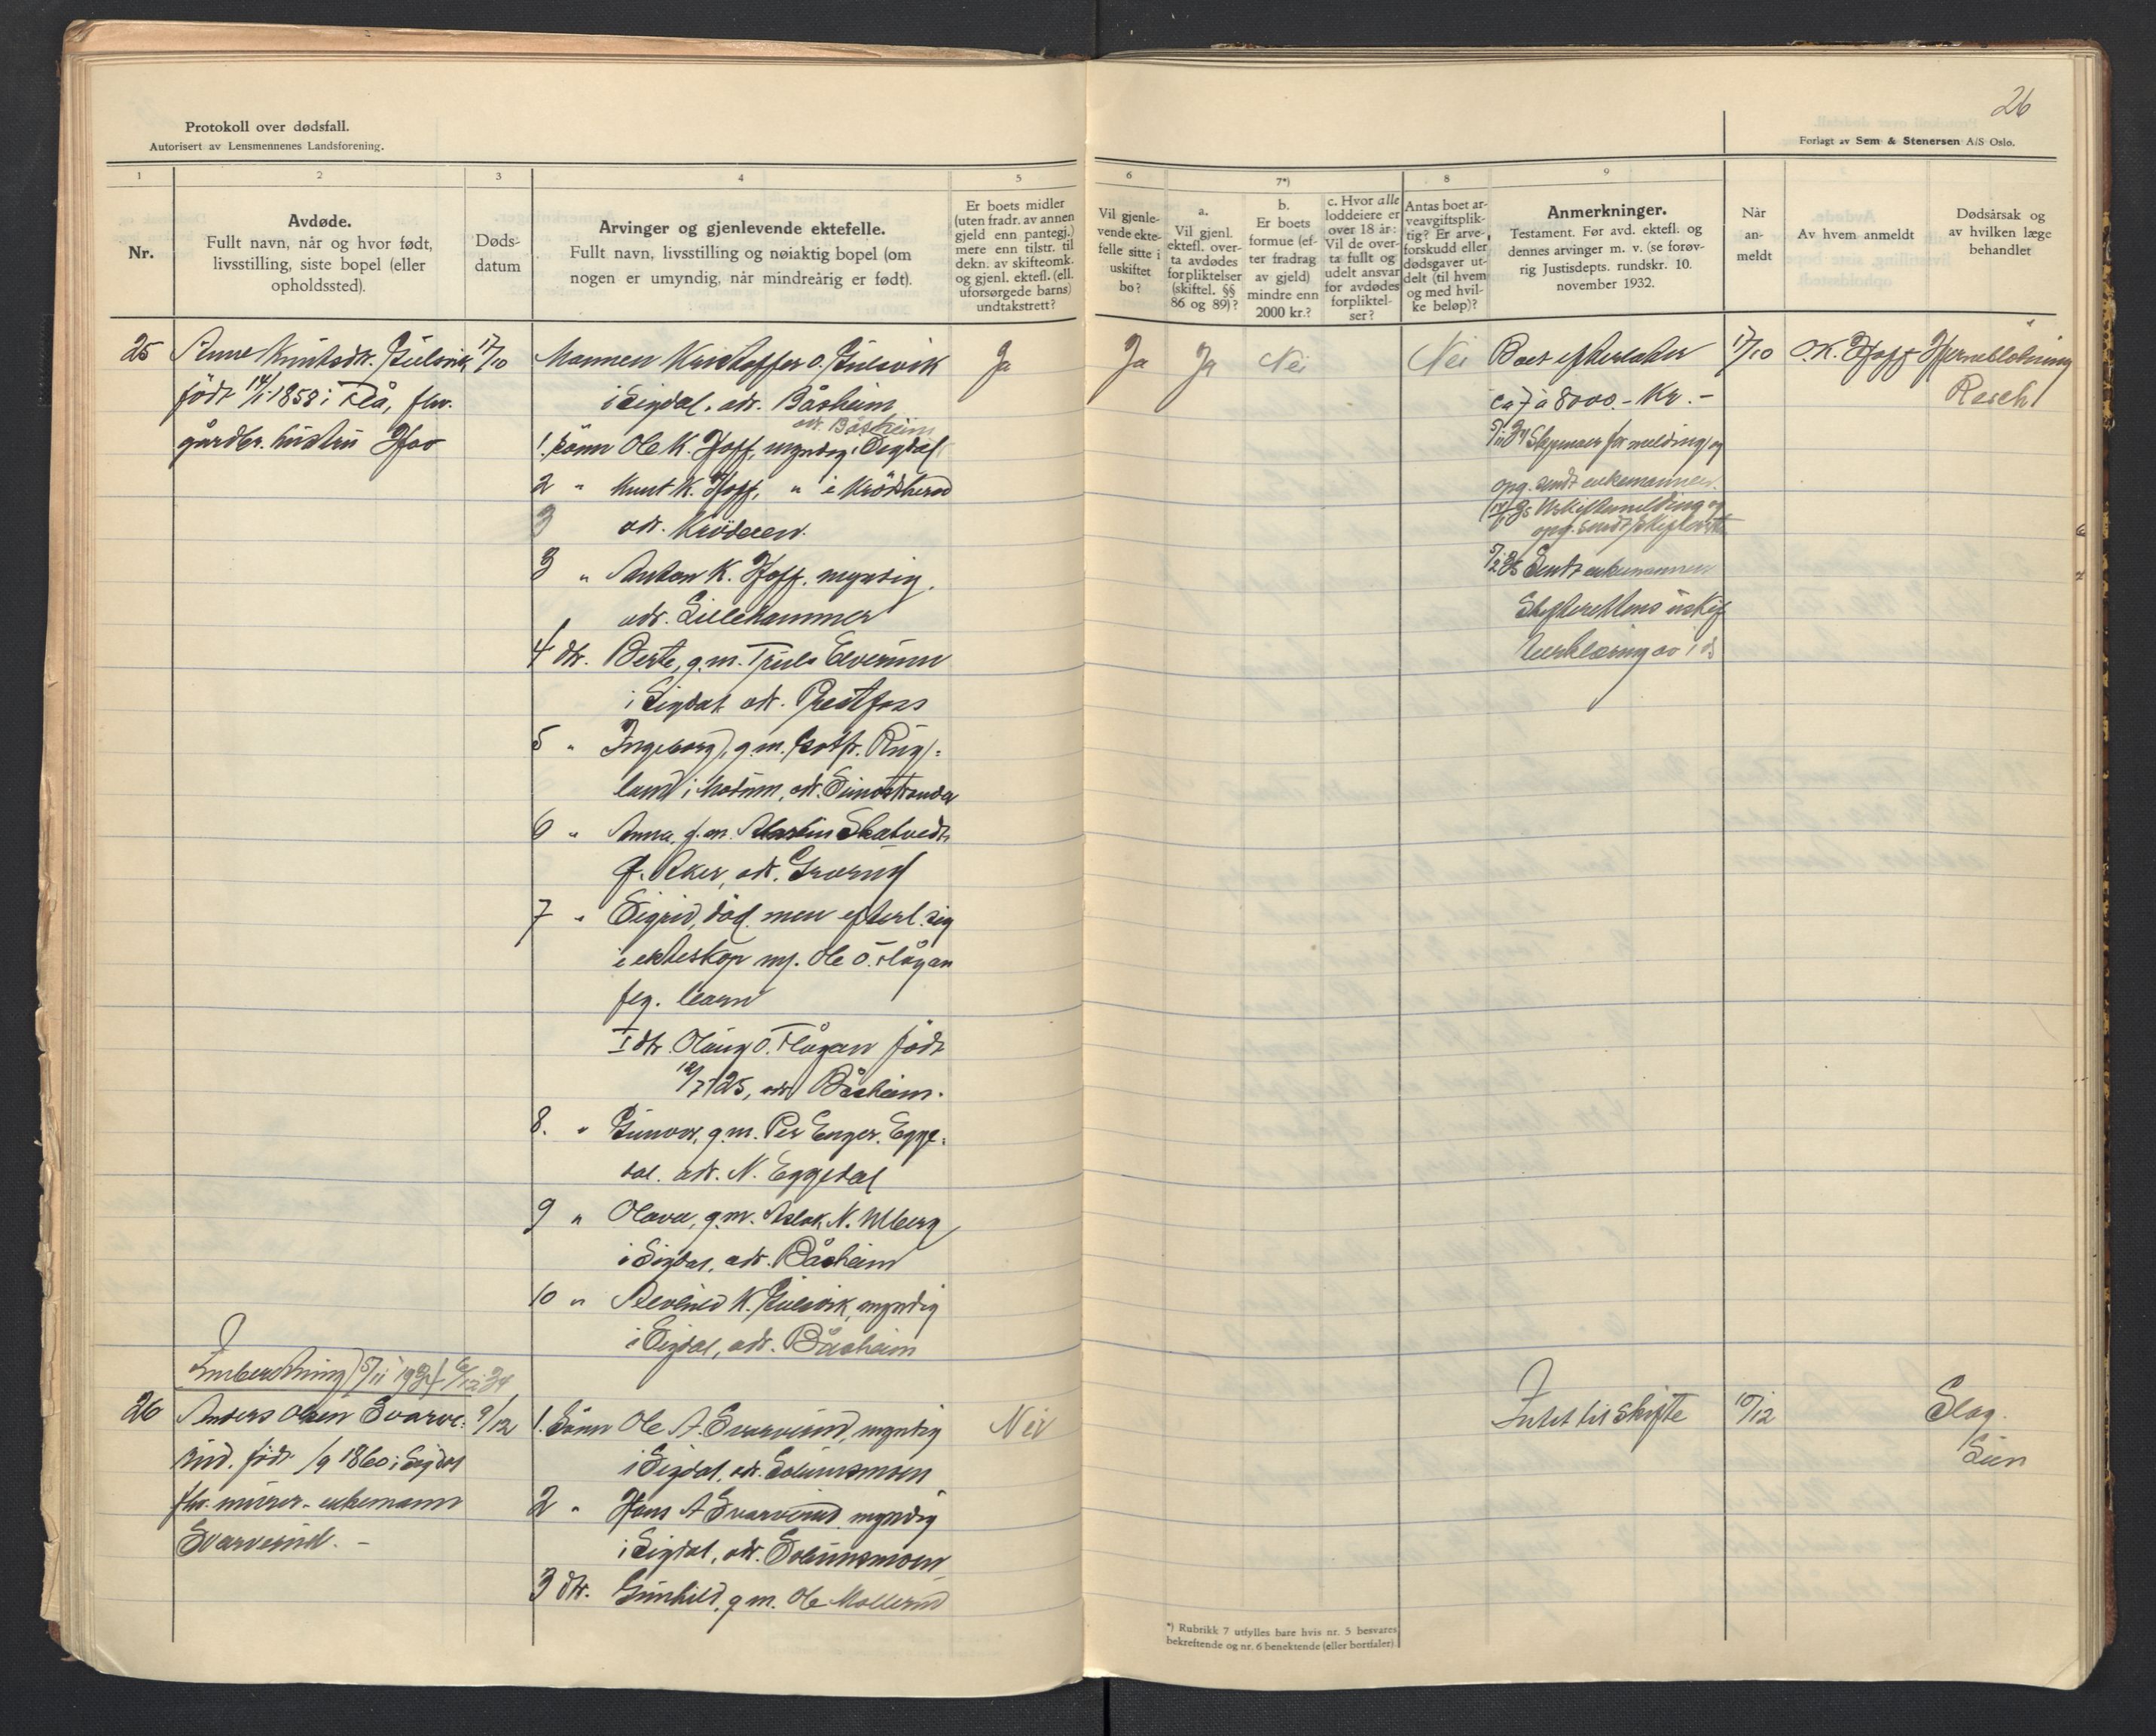 Protokoll over dødsfall.
Autorisert av Lensmennenes Landsforening.
26
Forlagt av Sem & Stenersen A/S Oslo.
1
2
3
4
5
6
7*)
8
9
Nr.
Avdøde.
Fullt navn, når og hvor født,
livsstilling, siste bopel (eller
opholdssted).
Døds-
datum
Arvinger og gjenlevende ektefelle.
Fullt navn, livsstilling og nøiaktig bopel (om
nogen er umyndig, når mindreårig er født).
Er boets midler
(uten fradr. av annen
gjeld enn pantegj.)
mere enn tilstr. til
dekn. av skifteomk.
og gjenl. ektefl. (ell.
uforsørgede barns)
undtakstrett?
Vil gjenle-
vende ekte-
felle sitte i
uskiftet
bo?
a.
Vil gjenl.
ektefl. over-
ta avdødes
forpliktelser
(skiftel. §§
86 og 89)?
b.
Er boets
formue (ef-
ter fradrag
av gjeld)
mindre enn
2000 kr.?
c. Hvor alle
loddeiere er
over 18 år:
Vil de over-
ta fullt og
udelt ansvar
for avdødes
forpliktel-
ser?
Antas boet ar-
veavgiftsplik-
tig? Er arve-
forskudd eller
dødsgaver ut-
delt (til hvem
og med hvil-
ke beløp)?
Anmerkninger.
Testament. Før avd. ektefl. og
dennes arvinger m. v. (se forøv-
rig Justisdepts. rundskr. 10.
november 1932.
Når
an-
meldt
Av hvem anmeldt
Dødsårsak og
av hvilken læge
behandlet
25
Anne Knutsdtr. Gulsvik
født 14/1 1858 i Flå, fhv.
gårdbr. hustru Hov
17/10
Mannen Kristoffer O. Gulsvik
i Sigdal, adr. Båsheim
adr. Båsheim
1. sønn Ole K. Hoff, myndig i Sigdal
2 " Knut K. Hoff, " i Krødsherad
adr. Krøderen.
3 " Anton K. Hoff, myndig,
adr. Lillehammer
4 dtr. Berte, g.m. Truls Elverum
i Sigdal adr. Prestfoss
5 " Ingeborg, g.m. Rug-
land i Modum, adr.
6 " Anna, g.m. Martin Skatvedt
Aker, adr. Grorud
7 " Sigrid, død men efterl. sig
i ekteskap m. Ole O. Flågan
flg. barn
I dtr. Olaug O. Flågan født
12/7 1925, adr. Båsheim.
8. " Gunvor, g.m. Per Enger, Egge-
dal. adr. N. Eggedal
9 " Olava, g.m. Aslak N. Ulberg
i Sigdal, adr. Båsheim
10 " K. Gulsvik, myndig
i Sigdal, adr. Båsheim
Ja
Ja
Ja
Nei
Nei
Boet efterlater
ca 7 à 8000.- Kr. -
5/11 34 for melding og
opg. sendt enkemannen.
opg. sendt
Sendt enkemannen
Skifterettens uskif
17/10
O. K. Hoff
Hjerneblødning
Rasch
Innberetning 5/11 1934 6/12 34
26
Anders Olsen Svarve-
rud. født /9 1860 i Sigdal
fhv. murer - enkemann
Svarverud. -
9/12
1. Sønn Ole A. Svarverud, myndig
i Sigdal, adr. Solumsmoen
2 " Hans A. Svarverud, myndig
i Sigdal, adr. Solumsmoen
3 dtr. Gunhild, g.m. Ole Mollerud
Nei
Intet til skifte
10/12
Slag.
*) Rubrikk 7 utfylles bare hvis nr. 5 besvares
bekreftende og nr. 6 benektende (eller bortfaler)